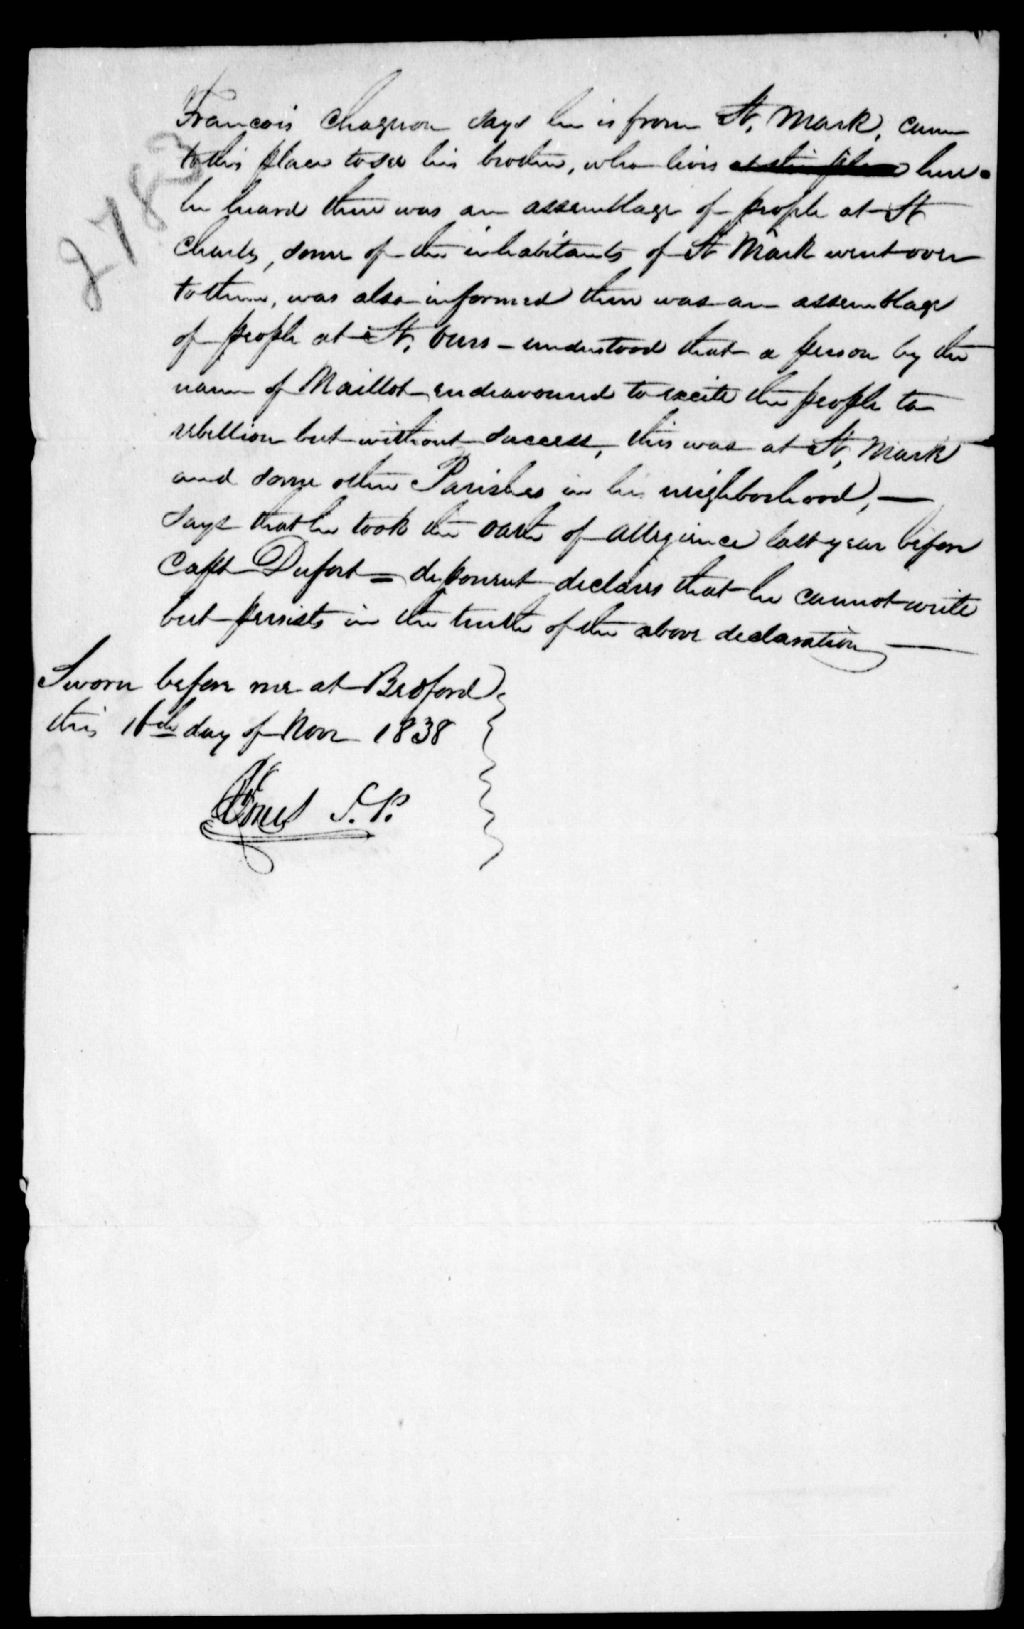 2783
Francois Chagnon says he is from St. Mark, came
to this place to see his brother, who livis at this place here.
he heard there was an assemblage of people at St
Charls, some of the inhabitants of St Mark went over
to them, was also informed there was an assemblage
of people at St. Ours – understood that a person by the
name of Maillot endeavoured to excite the people to
rebellion but without success, this was at St, Mark
and some other Parishes in his neighborhood, —
says that he took the oath of allegience last year before
Capt Dufort = deponent declares that he cannot write
but persists in the truth of the above declaration —
Sworn before me at Bedford
this 16th day of Novr 1838
Jones J.P.